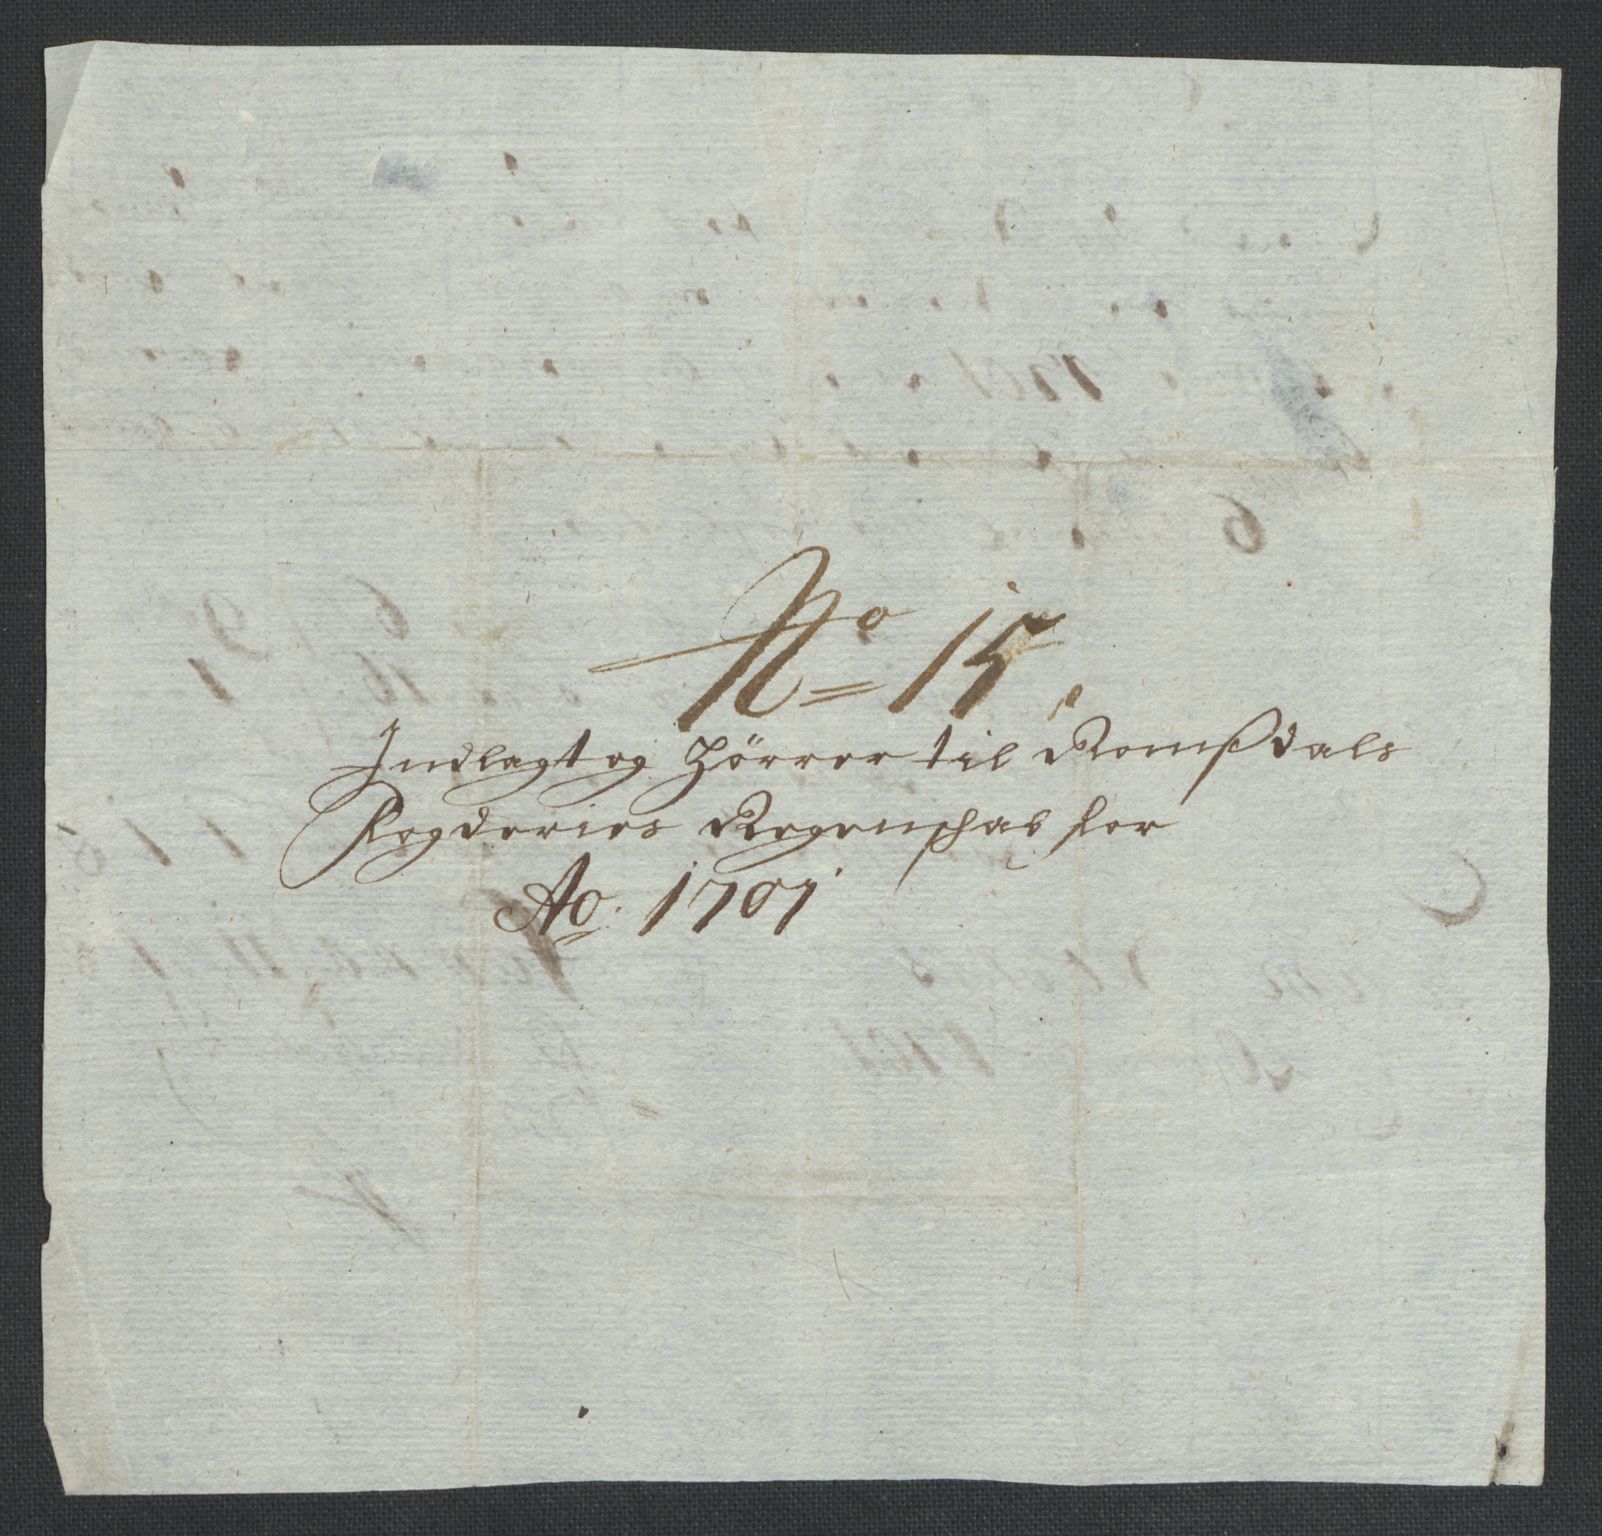 No 15.
Indlagt og Hörrer til Romßdals
Fogderies Regenschab for
Ao. 1701